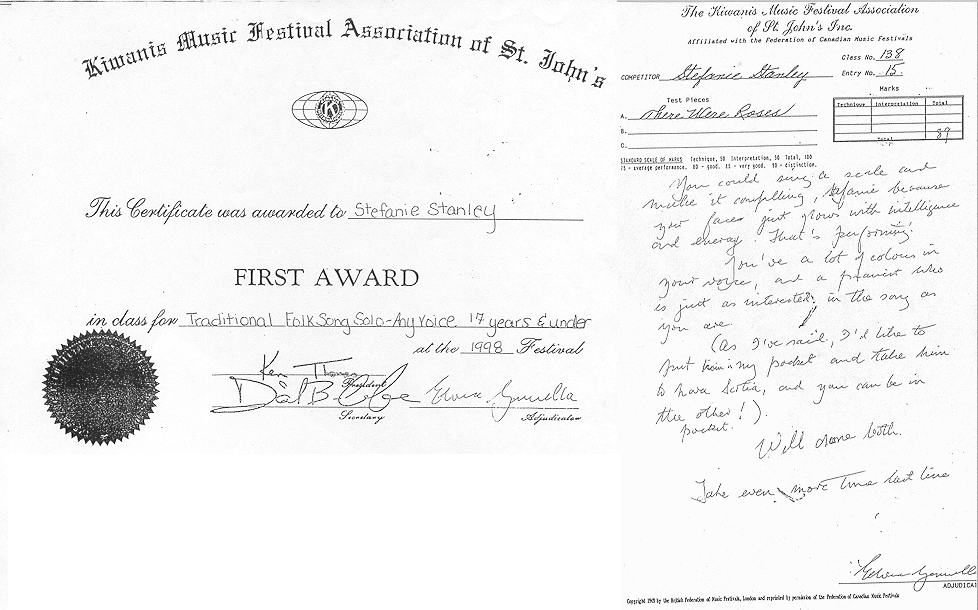 Kiwanis Music Festival Association of St. John's
This Certificate was awarded to Stefanie Stanley
FIRST AWARD
in class for Traditional FolkSong Solo-Any Voice 17 years & under
at the 1998 Festival
Ken
President
Secretary
Adjudicator
The Kiwanis Music Festival Association
of St. John's Inc.
Affiliated with the Federation of Canadian Music Festivals
Class No. 138
COMPETITOR Stefanie Stanley Entry No. 15
Marks
Test Pieces
Technique Interpretation Total
A. There Were Roses
B.
C.
Total 89
STANDARD SCALE OF MARKS Technique, 50 Interpretation, 50 Total, 100
75 - average performance. 80 - good. 85 - very good. 90 - distinction.
You could sing a scale and
make it compelling, Stefanie because
your faces just glows with intelligence
and energy! That's performing!
You've a lot of colours in
your voice, and a pianist who
is just as interested in the song as
you are.
(As I've said, I'd like to
put him in my pocket and take him
to Nova Scotia, and you can be in
the other!).
pocket.
Well done both.
Take even more time last line
ADJUDICA
Copyright 1969 by the British Federation of Music Festivals, London and reprinted by permission of the Federation of Canadian Music Festivals